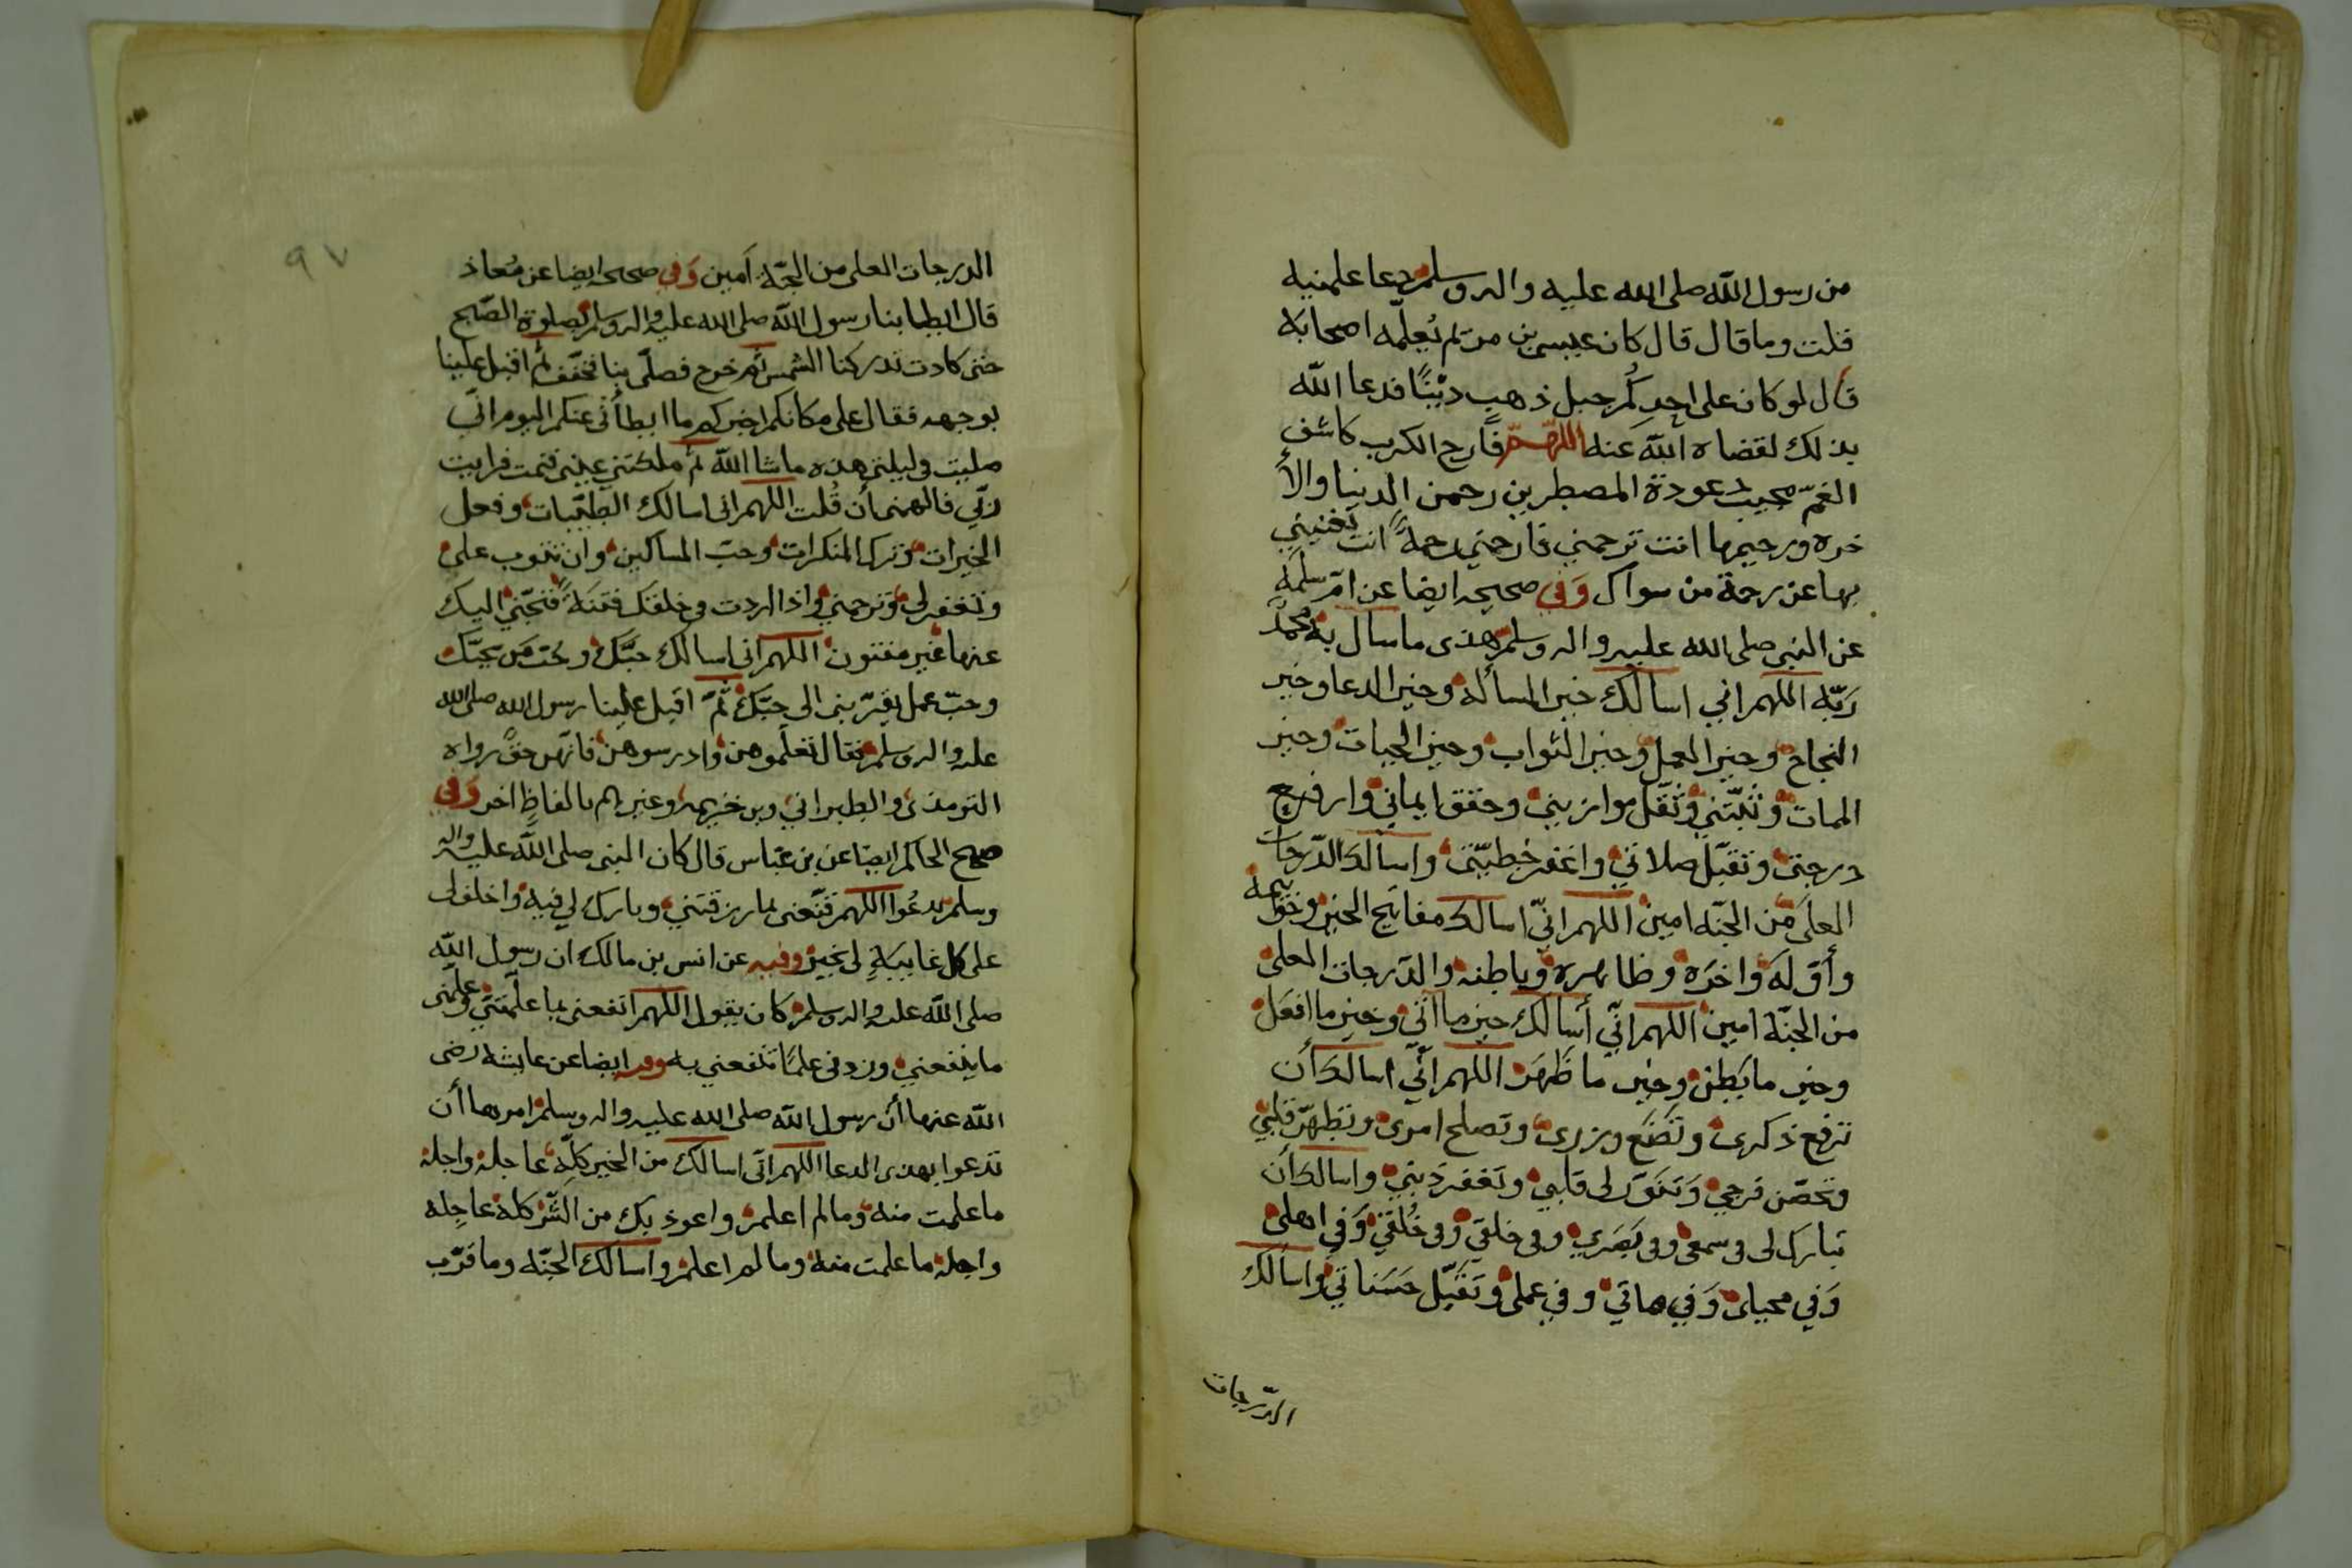 من رسول الله صلى الله عليه واله وسلم دعا علمنيه
قلت وما قال قال كان عيسى بن مريم يُعلّمه اصحابه
قال لو كان على احدِكُم جبل ذهب دَيْنًا فدعا الله
بذلك لقضاه الله عنه اللهم فارج الكرب كاشف
الغمّ مجيب دعوة المضطرين رحمن الدنيا والأ
خره ورحيمها انت ترحمني فارحمني رحمةً انت تغنيني
بها عن رحمة من سواك وَفي صحيحه ايضا عن امّ سلمَة
عن النبي صلى الله عليه واله وسلم هذى ما سال به محمدٌ
رَبّه اللهم اني اسالك خير المسألة وخير الدعا وخير
النجاح وخير العمل وخير الثواب وخير الحيات وخير
الممات وثبّتني وثقّل موازيني وحقق ايماني وارفع
درجتى وتقبّل صلاتي واغفر خطيّتى واسالك الدّرجات
العلَى من الجنّه امين اللهم انّي اسالك مفاتيح الخير وخواتمه
وأوّلَه واخرَه وظاهره وباطنه والدّرجات العلى
من الجنّة امين اللهم انّي أسالك خير ما اتي وخير ما افعَل
وخير ما بَطن وخير ما ظَهَر اللهم انّي اسالك أن
ترفع ذكرى وتَضَع وزرى وتصلح امرى وتطهّر قلبي
وتحصّن فرجي وَتنَوّر لى قلبي وتغفر ذنبي واسالك أن
تبارك لى فى سمعى وفى بَصَري وفى خلقي وفى خُلقي وَفي اهلى
وَفي محياى وَفي مماتي وفي عملى وتقبّل حسَناتي واسالك
الدّرجات
٩٧
الدرجات العلى من الجنّة آمين وَفي صحيحه ايضا عن مُعاذ
قال ابطا بنا رسول الله صلى الله عليه واله وسلم بصلوة الصّبح
حتى كادت تدركنا الشمس ثم خرج فصلّى بنا فخفف ثم اقبل علينا
بوجهه فقال على مكانكم اخبركم ما ابطأنى عنكم اليوم انّي
صليت فى ليلتى هذه ما شا الله ثم ملكتني عيني فنمت فرايت
ربّي فالهمنى أن قُلت اللهم اني اسالك الطيّبات وفعل
الخيرات وترك المنكرات وحبّ المساكين وان تتوب على
وتغفر لى وترحمني واذا اردت فى خلقك فتنَةً فنجّني اليك
عنها غير مفتون اللهم اني اسالك حبّك وحبّ مَن يحبّك
وحبّ عمل يقرّبنى الى حبّك ثمّ اقبل علينا رسول الله صلى الله
عليه واله وسلم فقال تعلّموهن وادرسوهن فانّهن حقٌ رواه
الترمذى والطبراني وبن خزيمه وغيرهم بالفاظٍ اخر وَفى
صحيح الحاكم ايضا عن بن عبّاس قال كان النبى صلى الله عليه واله
وسلم يدعُوا اللهم قنّعنى بما رزقتني وبارك لي فيه واخلف لى
على كل غايبَةٍ لى بخير وفيه عن انس بن مالك ان رسول الله
صلى الله عليه واله وسلم كان يقول اللهم انفعنى بما علّمتني وعلّمنى
ما ينفعني وزدنى علمًا تنفعني به وفيه ايضا عن عايشه رضى
الله عنها أن رسول الله صلى الله عليه واله وسلم امرها أن
تدعوا بهذى الدعا اللهم انّى اسالك من الخير كلّه عاجله واجله
ما علمت منه وما لم اعلم واعوذ بك من الشّر كله عاجِله
واجله ما علمت منه وما لم اعلم واسالك الجنّه وما قرّب